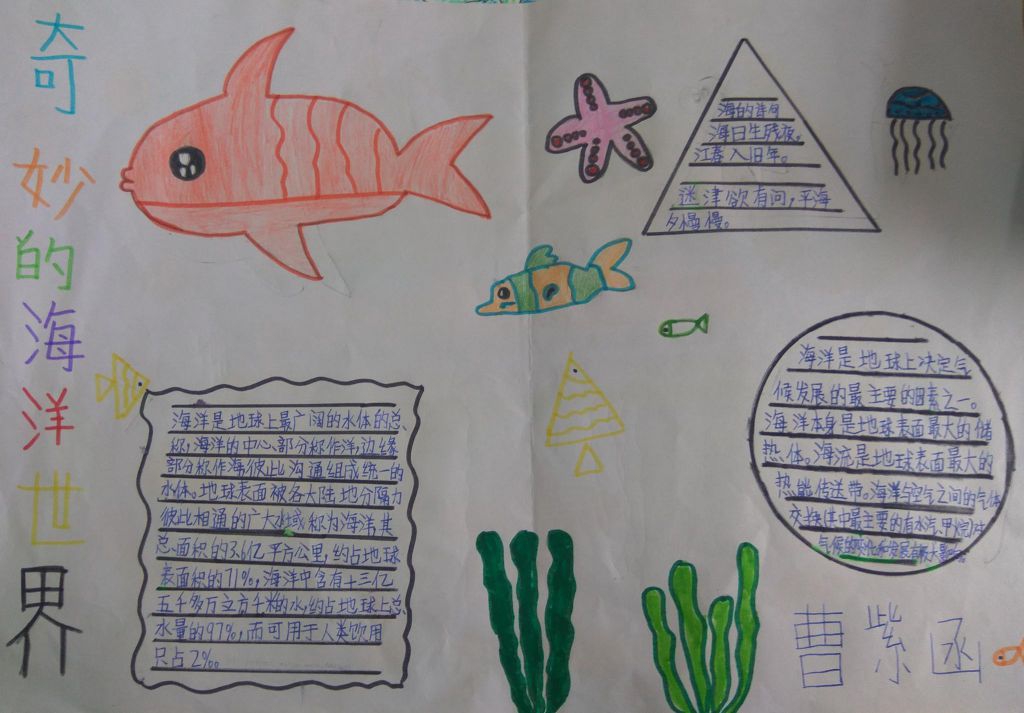 奇妙的海洋世界
海的诗句
海日生残夜。
江春入旧年。
迷津欲有问，平海
夕漫漫。
海洋是地球上最广阔的水体的总
称，海洋的中心部分称作洋，边缘
部分称作海，彼此沟通组成统一的
水体。地球表面被各大陆地分隔为
彼此相通的广大水域称为海洋，其
总面积约3.6亿平方公里，约占地球
表面积的71%，海洋中含有十三亿
五千多万立方千米的水，约占地球上总
水量的97%，而可用于人类饮用
只占2%。
海洋是地球上决定气
候发展的最主要的因素之一。
海洋本身是地球表面最大的储
热体。海流是地球表面最大的
热能传送带。海洋与空气之间的气体
交换其中最主要的有水汽、甲烷
气候的变化和发展有
曹紫函